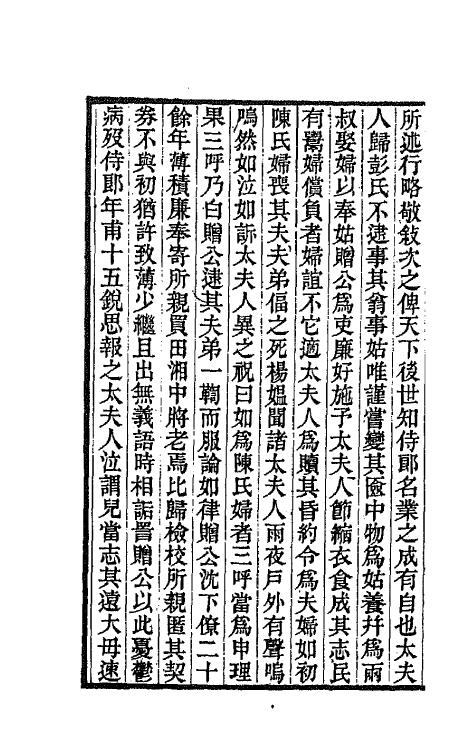 所述行略敬敍次之俾天下後世知侍郎名業之成有自也太夫
人歸彭氏不逮事其翁事姑唯謹嘗變其匳中物爲姑養幷爲兩
叔娶婦以奉姑贈公爲吏廉好施予太夫人節縮衣食成其志民
有鬻婦償負者婦誼不它適太夫人爲贖其昏約令爲夫婦如初
陳氏婦喪其夫夫弟偪之死楊媼聞諸太夫人雨夜戸外有聲嗚
嗚然如泣如訴太夫人異之祝曰如爲陳氏婦者三呼當爲申理
果三呼乃白贈公逮其夫弟一鞫而服論如律贈公沈下僚二十
餘年薄積廉奉寄所親買田湘中將老焉比歸檢校所親匿其契
券不與初猶許致薄少繼且出無義語時相詬詈贈公以此憂鬱
病歿侍郎年甫十五銳思報之太夫人泣謂兒當志其遠大毋速